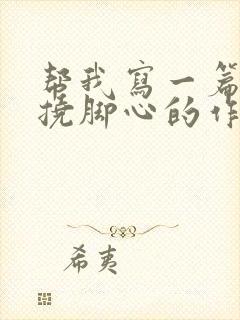 帮我寫一篇
撓脚心的作
希夷